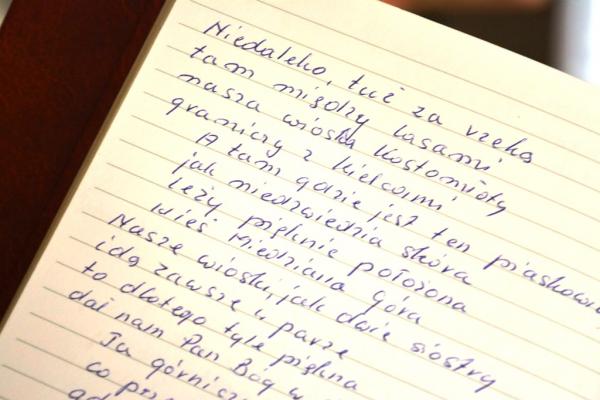 Niedaleko, tuż za rzeką
tam między lasami
nasza wioska Kostomłoty
graniczy z Kielcami
A tam gdzie jest ten piaskowiec
jak niedźwiedzia skóra
leży pięknie położona
wieś Miedziana Góra
Nasze wioski, jak dwie siostry
idą zawsze w parze
to dlatego tyle piękna
dał nam Pan Bóg w
Tu górnicz
co prz